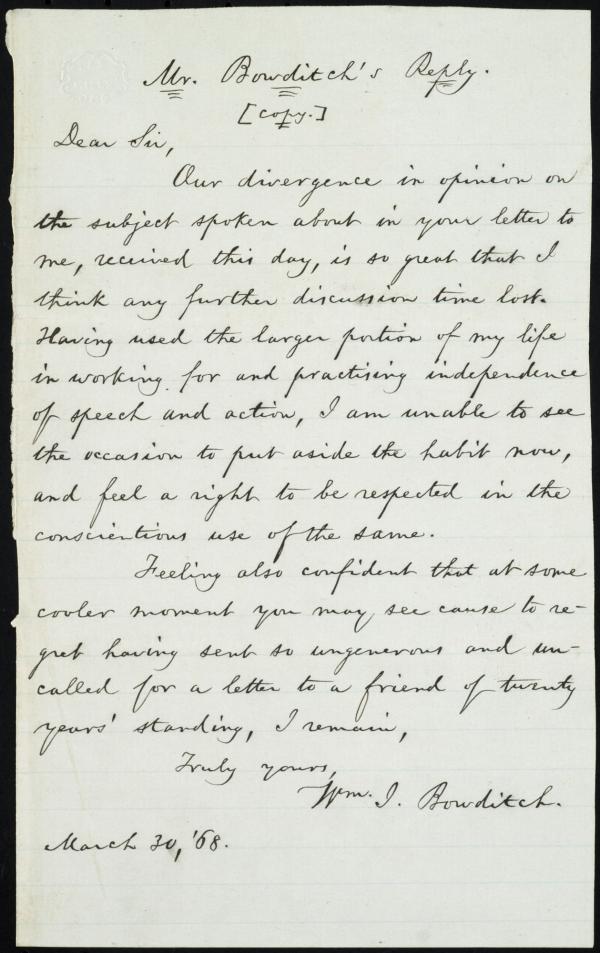 Mr. Bowditch's Reply.
[copy.]
Dear Sir,
Our divergence in opinion on
the subject spoken about in your letter to
me, received this day, is so great that I
think any further discussion time lost.
Having used the larger portion of my life
in working for and practising independence
of speech and action, I am unable to see
the occasion to put aside the habit now,
and feel a right to be respected in the
conscientious use of the same.
Feeling also confident that at some
cooler moment you may see cause to re-
gret having sent so ungenerous and un-
called for a letter to a friend of twenty
years' standing, I remain,
Truly yours,
Wm. I. Bowditch.
March 30, '68.